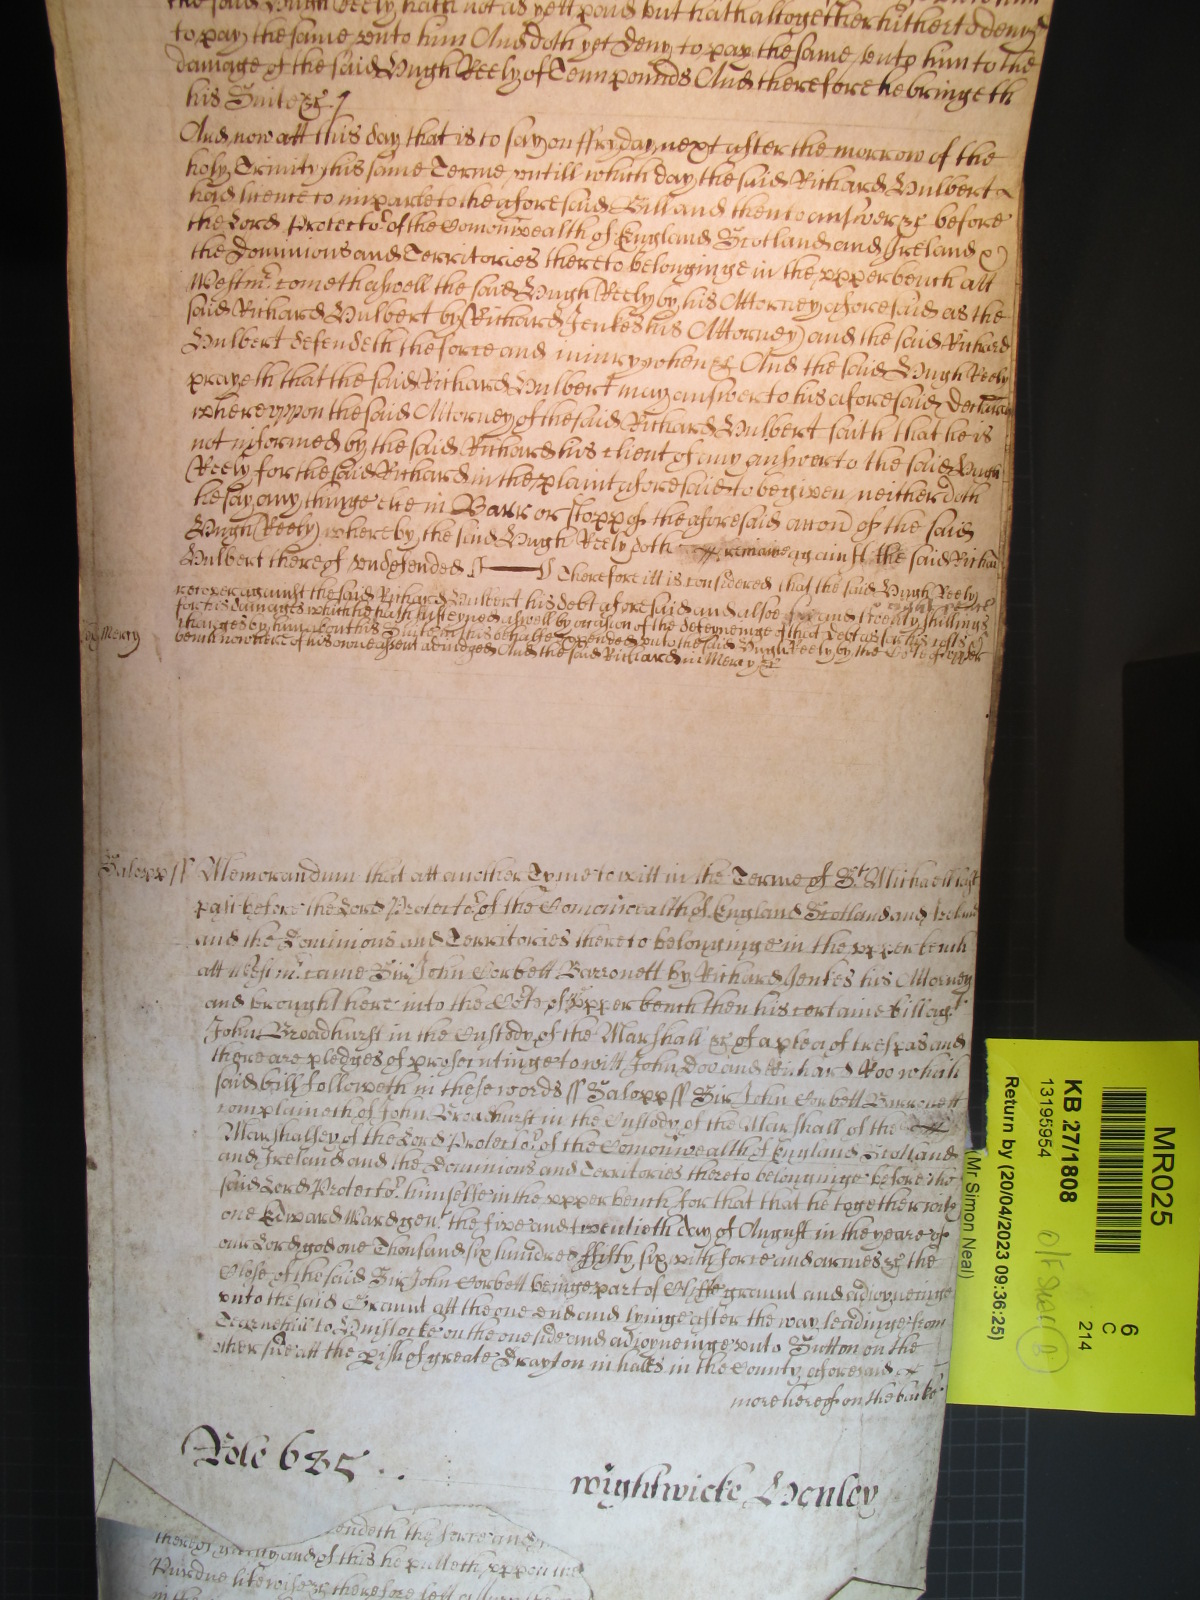 the said Hugh Reely hath not as yett paid but hath altogether hitherto denyed
to pay the same unto him And doth yet Deny to pay the same unto him to the
damage of the said Hugh Reely of Tenn pounds And therefore he bringeth
his Suite &c
And now att this day that is to say on ffryday next after the morrow of the
holy Trinity this same Terme untill which day the said Richard Hulbert
had licence to imparle to the aforesaid Bill and then to answer &c before
the Lord Protector of the Comonwealth of England Scotland and Ireland &
the Dominions and Territories thereto belonginge in the upper bench att
Westmr. cometh aswell the said Hugh Reely by his Attorney aforesaid as the
said Richard Hulbert by Richard Jenkes his Attorney and the said Richard
Hulbert defendeth the force and iniury when &c And the said Hugh Reely
prayeth that the said Richard Hulbert may answer to his aforesaid Declarac
whereuppon the said Attorney of the said Richard Hulbert saith that he is
not informed by the said Richard his client of any answer to the said Hugh
Reely for the said Richard in the plaint aforesaid to be given neither doth
he say any thinge else in Barr or stopp of the aforesaid accon of the said
Hugh Reely whereby the said Hugh Reely doth remaine against the said Richard
Hulbert thereof undefended Therefore itt is considered that the said Hugh Reely
recover against the said Richard Hulbert his debt aforesaid and alsoe and twenty shillings
for his damages which he hath susteyned aswell by occasion of the deteyneinge of that Debt as for his costs &
charges by him about his Suite in this behalfe expended unto the said Hugh Reely by the Cort of upper
bench now here of his owne assent adiudged And the said Richard in Mercy &c
Mercy
Salopp ss Memorandum that att another Tyme to witt in the Terme of St. Michaell last
past before the Lord Protector of the Comonwealth of England Scotland and Ireland
and the Dominions and Territories thereto belonginge in the upper bench
att Westmr. came Sir John Corbett Barronett by Richard Jenkes his Attorney
and brought here into the Cort of upper bench then his certaine bill agt
John Broadhurst in the Custody of the Marshall &c of a plea of trespas and
there are pledges of prosecutinge to witt John Doo and Richard Roo which
said bill followeth in these words ss Salopp ss Sir John Corbett Barronett
complaineth of John Broadhurst in the Custody of the Marshall of the
Marshalsey of the Lord Protector of the Comonwealth of England Scotland
and Ireland and the Dominions and Territories thereto belonginge before the
said Lord Protector himselfe in the upper bench for that that he together with
one Edward Ward gent the five and twentieth day of August in the yeare of
our Lord god one Thousand six hundred ffifty six with force and armes &c the
Close of the said Sir John Corbett beinge part of Cliffe ground and adioyneinge
unto the said Ground att the one end and lyinge after the way leadinge from
to on the one side and adioyneinge unto Sutton on the
other side att the pish of greate Drayton in hales in the County aforesaid &
more hereof on the backe
Role 685
Wightwicke Henley
endeth the force and
thereof guilty and of this he putteth uppon the
Purdue likewise &c therefore
MR025
6
C
214
KB 27/1808
13195954
Return by (20/04/2023 09:36:25)
(Mr Simon Neal)